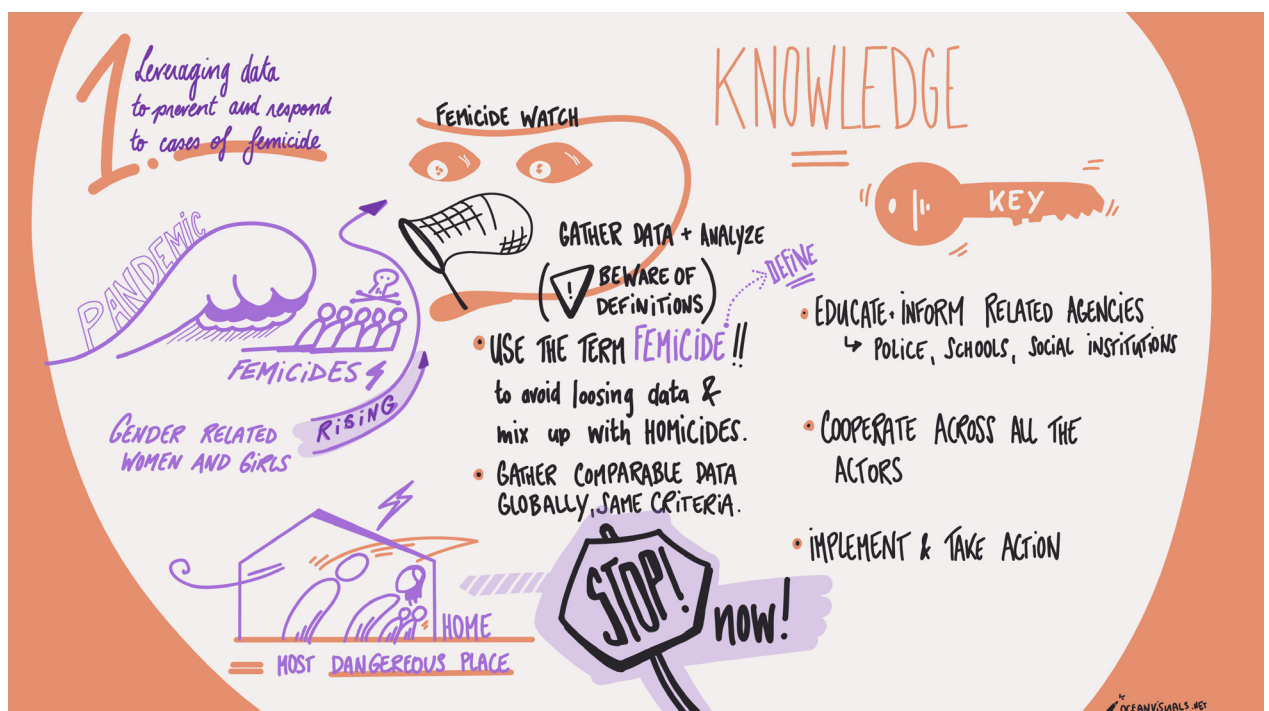 1.
Leveraging data
to prevent and respond
to cases of femicide
PANDEMIC
FEMICIDES
GENDER RELATED
WOMEN AND GIRLS
RISING
HOME
= MOST DANGEREOUS PLACE
FEMICIDE WATCH
GATHER DATA + ANALYZE
(! BEWARE OF
DEFINITIONS)
DEFINE
• USE THE TERM FEMICIDE!!
to avoid loosing data &
mix up with HOMICIDES.
• GATHER COMPARABLE DATA
GLOBALLY, SAME CRITERIA.
STOP!
now!
KNOWLEDGE
=
KEY
• EDUCATE + INFORM RELATED AGENCIES
↳ POLICE, SCHOOLS, SOCIAL INSTITUTIONS
• COOPERATE ACROSS ALL THE
ACTORS
• IMPLEMENT & TAKE ACTION
OCEANVISUALS.NET